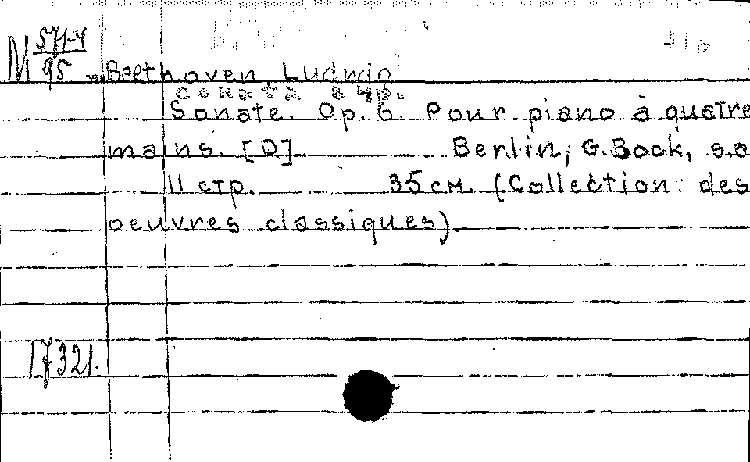 M 571-4
95
Beethoven, Ludwig
соната в 4р.
Sonate. Op. 6. Pour piano à quatre
mains. [D] Berlin, G. Bock, s.a
11 стр. 35 см. (Collection des
oeuvres classiques)
17321.